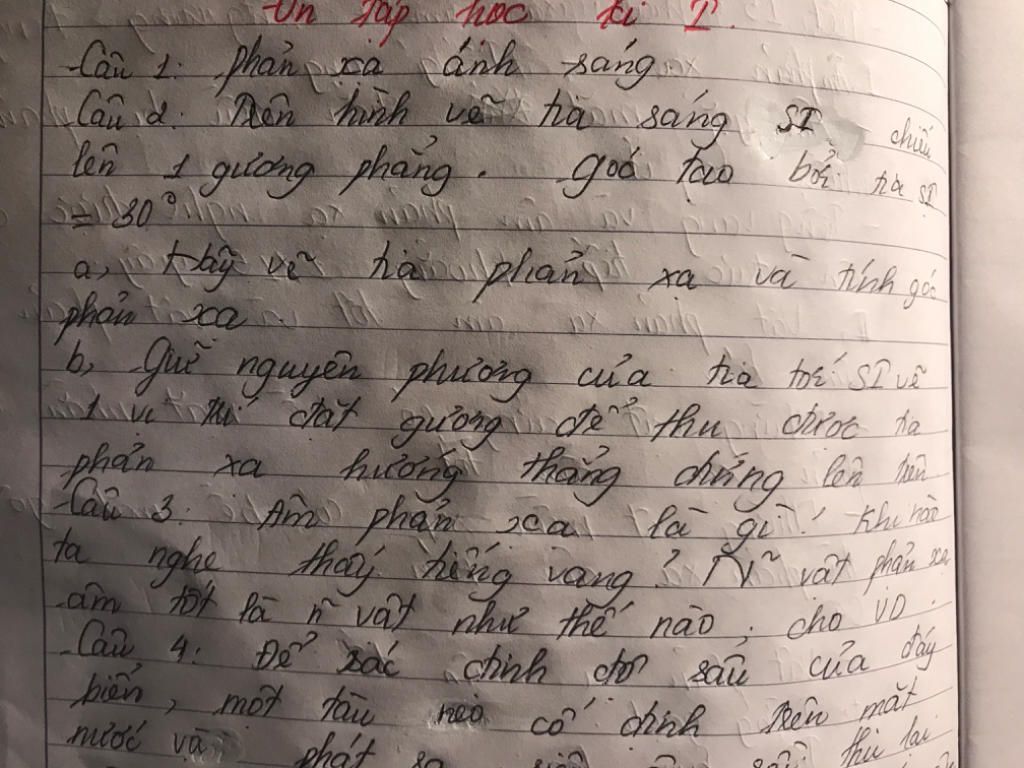 Ôn tập học kì I.
Câu 1: phản xạ ánh sáng
Câu 2: Trên hình vẽ tia sáng SI chiếu
lên 1 gương phẳng. góc tạo bởi tia SI
= 30°
a, Hãy vẽ tia phản xạ và tính góc
phản xạ
b, Giữ nguyên phương của tia tới SI vẽ
1 vị trí đặt gương để thu được tia
phản xạ hướng thẳng đứng lên trên
Câu 3: Âm phản xạ là gì? Khi nào
ta nghe thấy tiếng vang? N~ vật phản xạ
âm tốt là n~ vật như thế nào. cho VD.
Câu 4: Để xác định độ sâu của đáy
biển, một tàu neo cố định trên mặt
nước và phát ra siêu âm thu lại